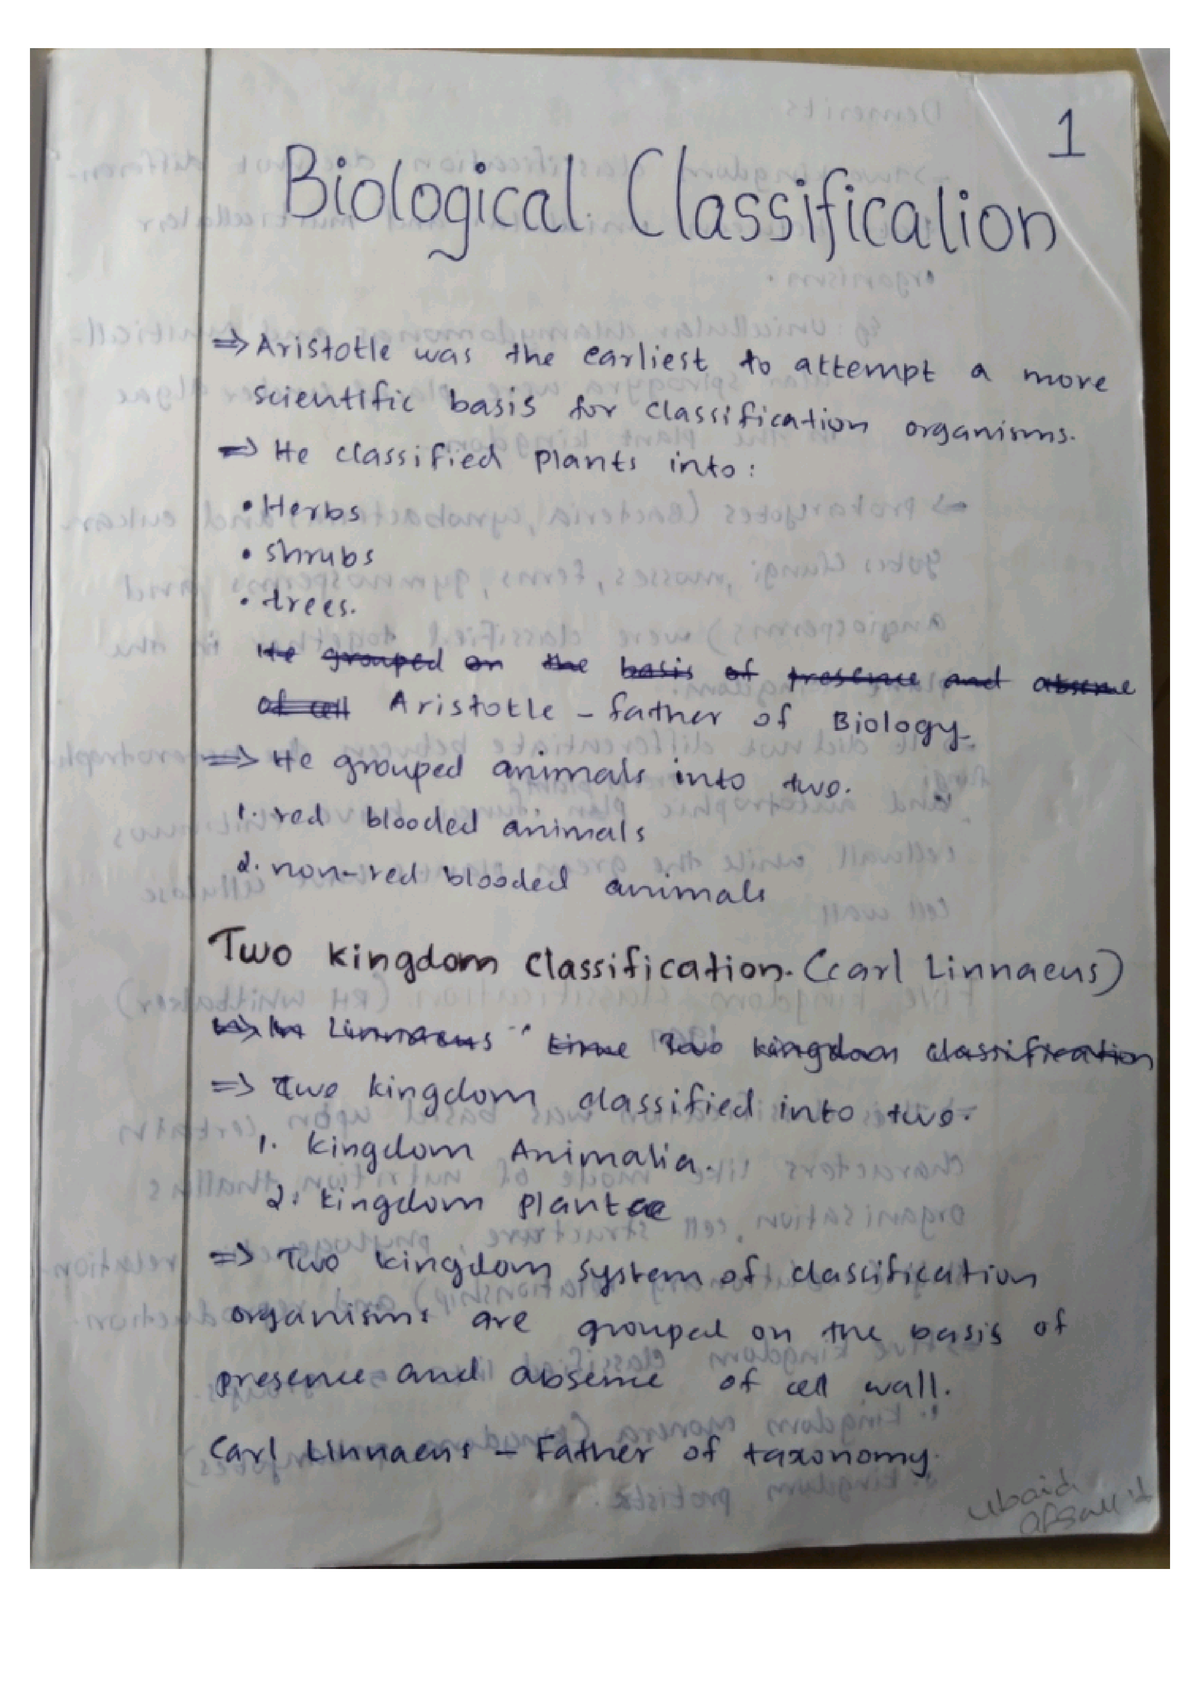 1
Biological Classification
⇒ Aristotle was the earliest to attempt a more
scientific basis for classification organisms.
⇒ He classified plants into:
• Herbs
• shrubs
• trees.
He grouped on the basis of presence and absense
of cell Aristotle – father of Biology.
⇒ He grouped animals into two.
1. red blooded animals
2. non-red blooded animals
Two kingdom classification. (Carl Linnaeus)
In Linnaeus time Two kingdom classification
⇒ Two kingdom classified into two.
1. kingdom Animalia.
2. kingdom plantae
⇒ Two kingdom system of classification
organisms are grouped on the basis of
presence and absense of cell wall.
Carl Linnaeus – Father of taxonomy.
ubaid